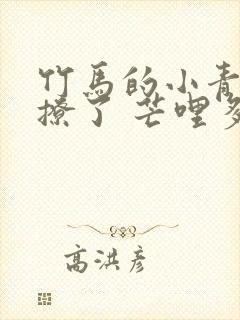 竹馬的小青
撩了 芒哩
高洪彦